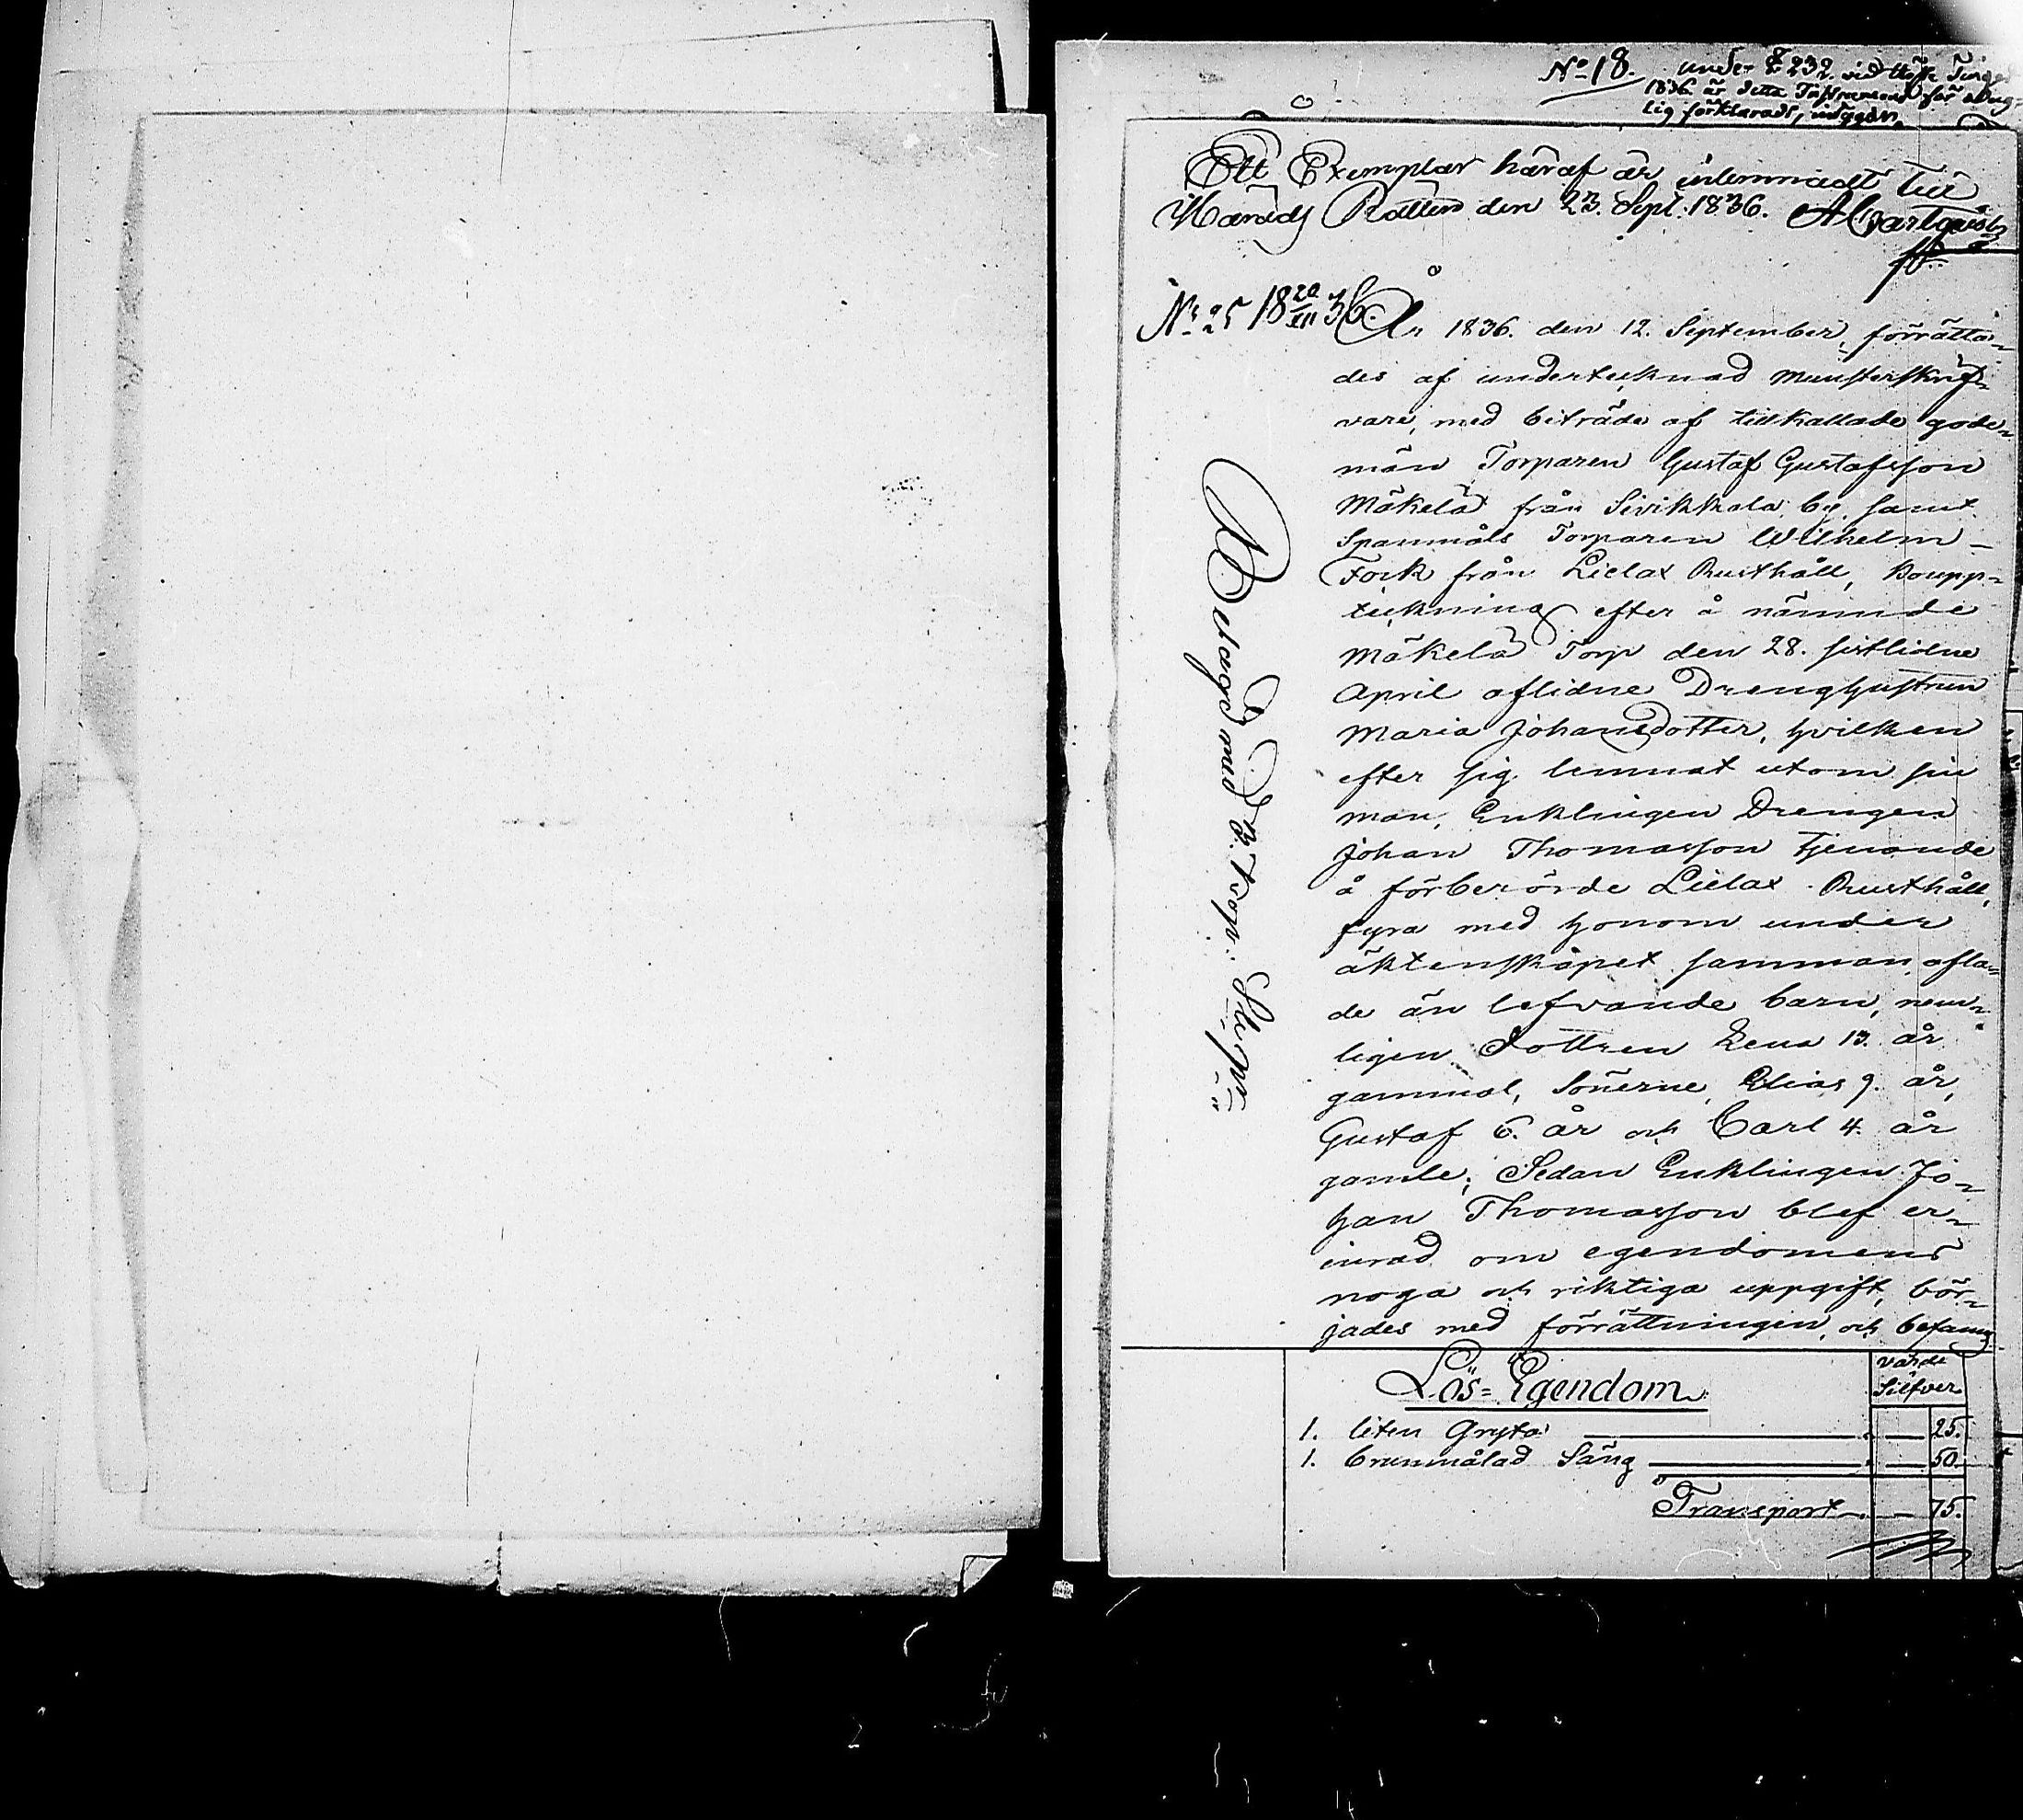 No 18. under § 232. vid Höste Tinget
1836 är detta Instrument för
lig förklarads, intygar,
Ett Exemplar häraf är inlemnadt till
Härads Rätten den 23. Sept. 1836.
No 25 18 20/XII 36
År 1836. den 12. September, förrätta-
des af undertecknad munsterskrif-
vare, med biträde af tillkallade gode-
män Torparen Gustaf Gustafsson
Mäkelä från Sivikkala by, samt
Spanmåls Torparen Wilhelm
Fork från Lielax Rusthåll, Boupp-
teckning efter å nämnde
Mäkelä Torp den 28. sistlidne
April aflidne Drenghustrun
Maria Johansdotter, hvilken
efter sig lemnat utom sin
man, Enklingen Drengen
Johan Thomasson tjenande
å förberörde Lielax Rusthåll,
fyra med honom under
äktenskapet samman afla-
de än lefvande barn, nem-
ligen Dottren Lena 13. år
gammal, Sönerne, Elias 9. år,
Gustaf 6. år och Carl 4. år
gamle; Sedan Enklingen Jo-
han Thomasson blef er-
inrad om egendomens
noga och riktiga uppgift, bör-
jades med förrättningen, och befanns
Belagd med 2. Kop:
Lös-Egendom värde Silfver
1. liten Gryta — 25.
1. brunmålad Säng — 50.
Transport — 75.